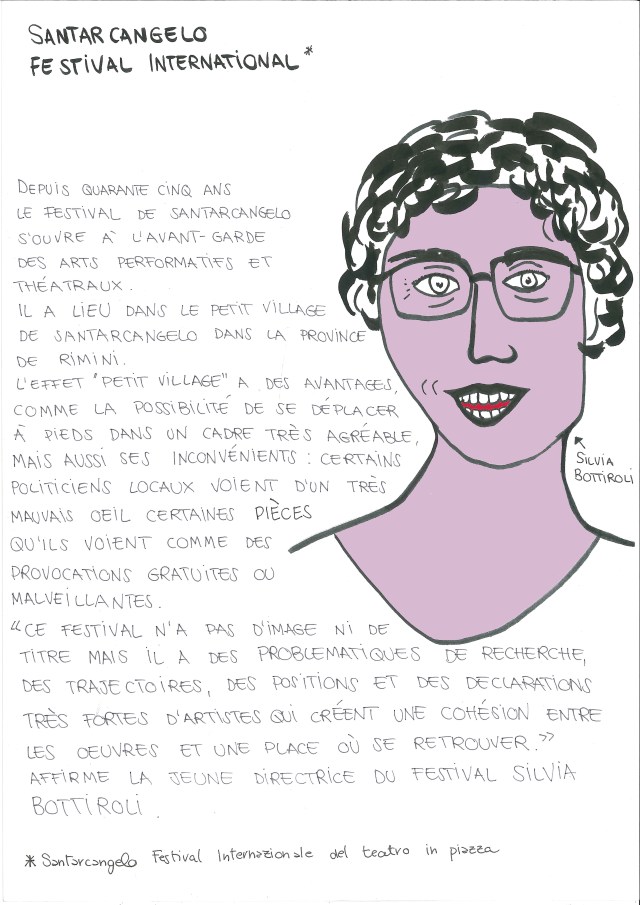 SANTARCANGELO
FESTIVAL INTERNATIONAL*
DEPUIS QUARANTE CINQ ANS
LE FESTIVAL DE SANTARCANGELO
S'OUVRE À L'AVANT-GARDE
DES ARTS PERFORMATIFS ET
THÉATRAUX.
IL A LIEU DANS LE PETIT VILLAGE
DE SANTARCANGELO DANS LA PROVINCE
DE RIMINI.
L'EFFET "PETIT VILLAGE" A DES AVANTAGES,
COMME LA POSSIBILITÉ DE SE DÉPLACER
À PIEDS DANS UN CADRE TRÈS AGRÉABLE,
MAIS AUSSI SES INCONVÉNIENTS : CERTAINS
POLITICIENS LOCAUX VOIENT D'UN TRÈS
MAUVAIS OEIL CERTAINES PIÈCES
QU'ILS VOIENT COMME DES
PROVOCATIONS GRATUITES OU
MALVEILLANTES.
SILVIA
BOTTIROLI
"CE FESTIVAL N'A PAS D'IMAGE NI DE
TITRE MAIS IL A DES PROBLEMATIQUES DE RECHERCHE,
DES TRAJECTOIRES, DES POSITIONS ET DES DECLARATIONS
TRÈS FORTES D'ARTISTES QUI CRÉENT UNE COHÉSION ENTRE
LES OEUVRES ET UNE PLACE OÙ SE RETROUVER."
AFFIRME LA JEUNE DIRECTRICE DU FESTIVAL SILVIA
BOTTIROLI.
* Santarcangelo Festival Internazionale del teatro in piazza